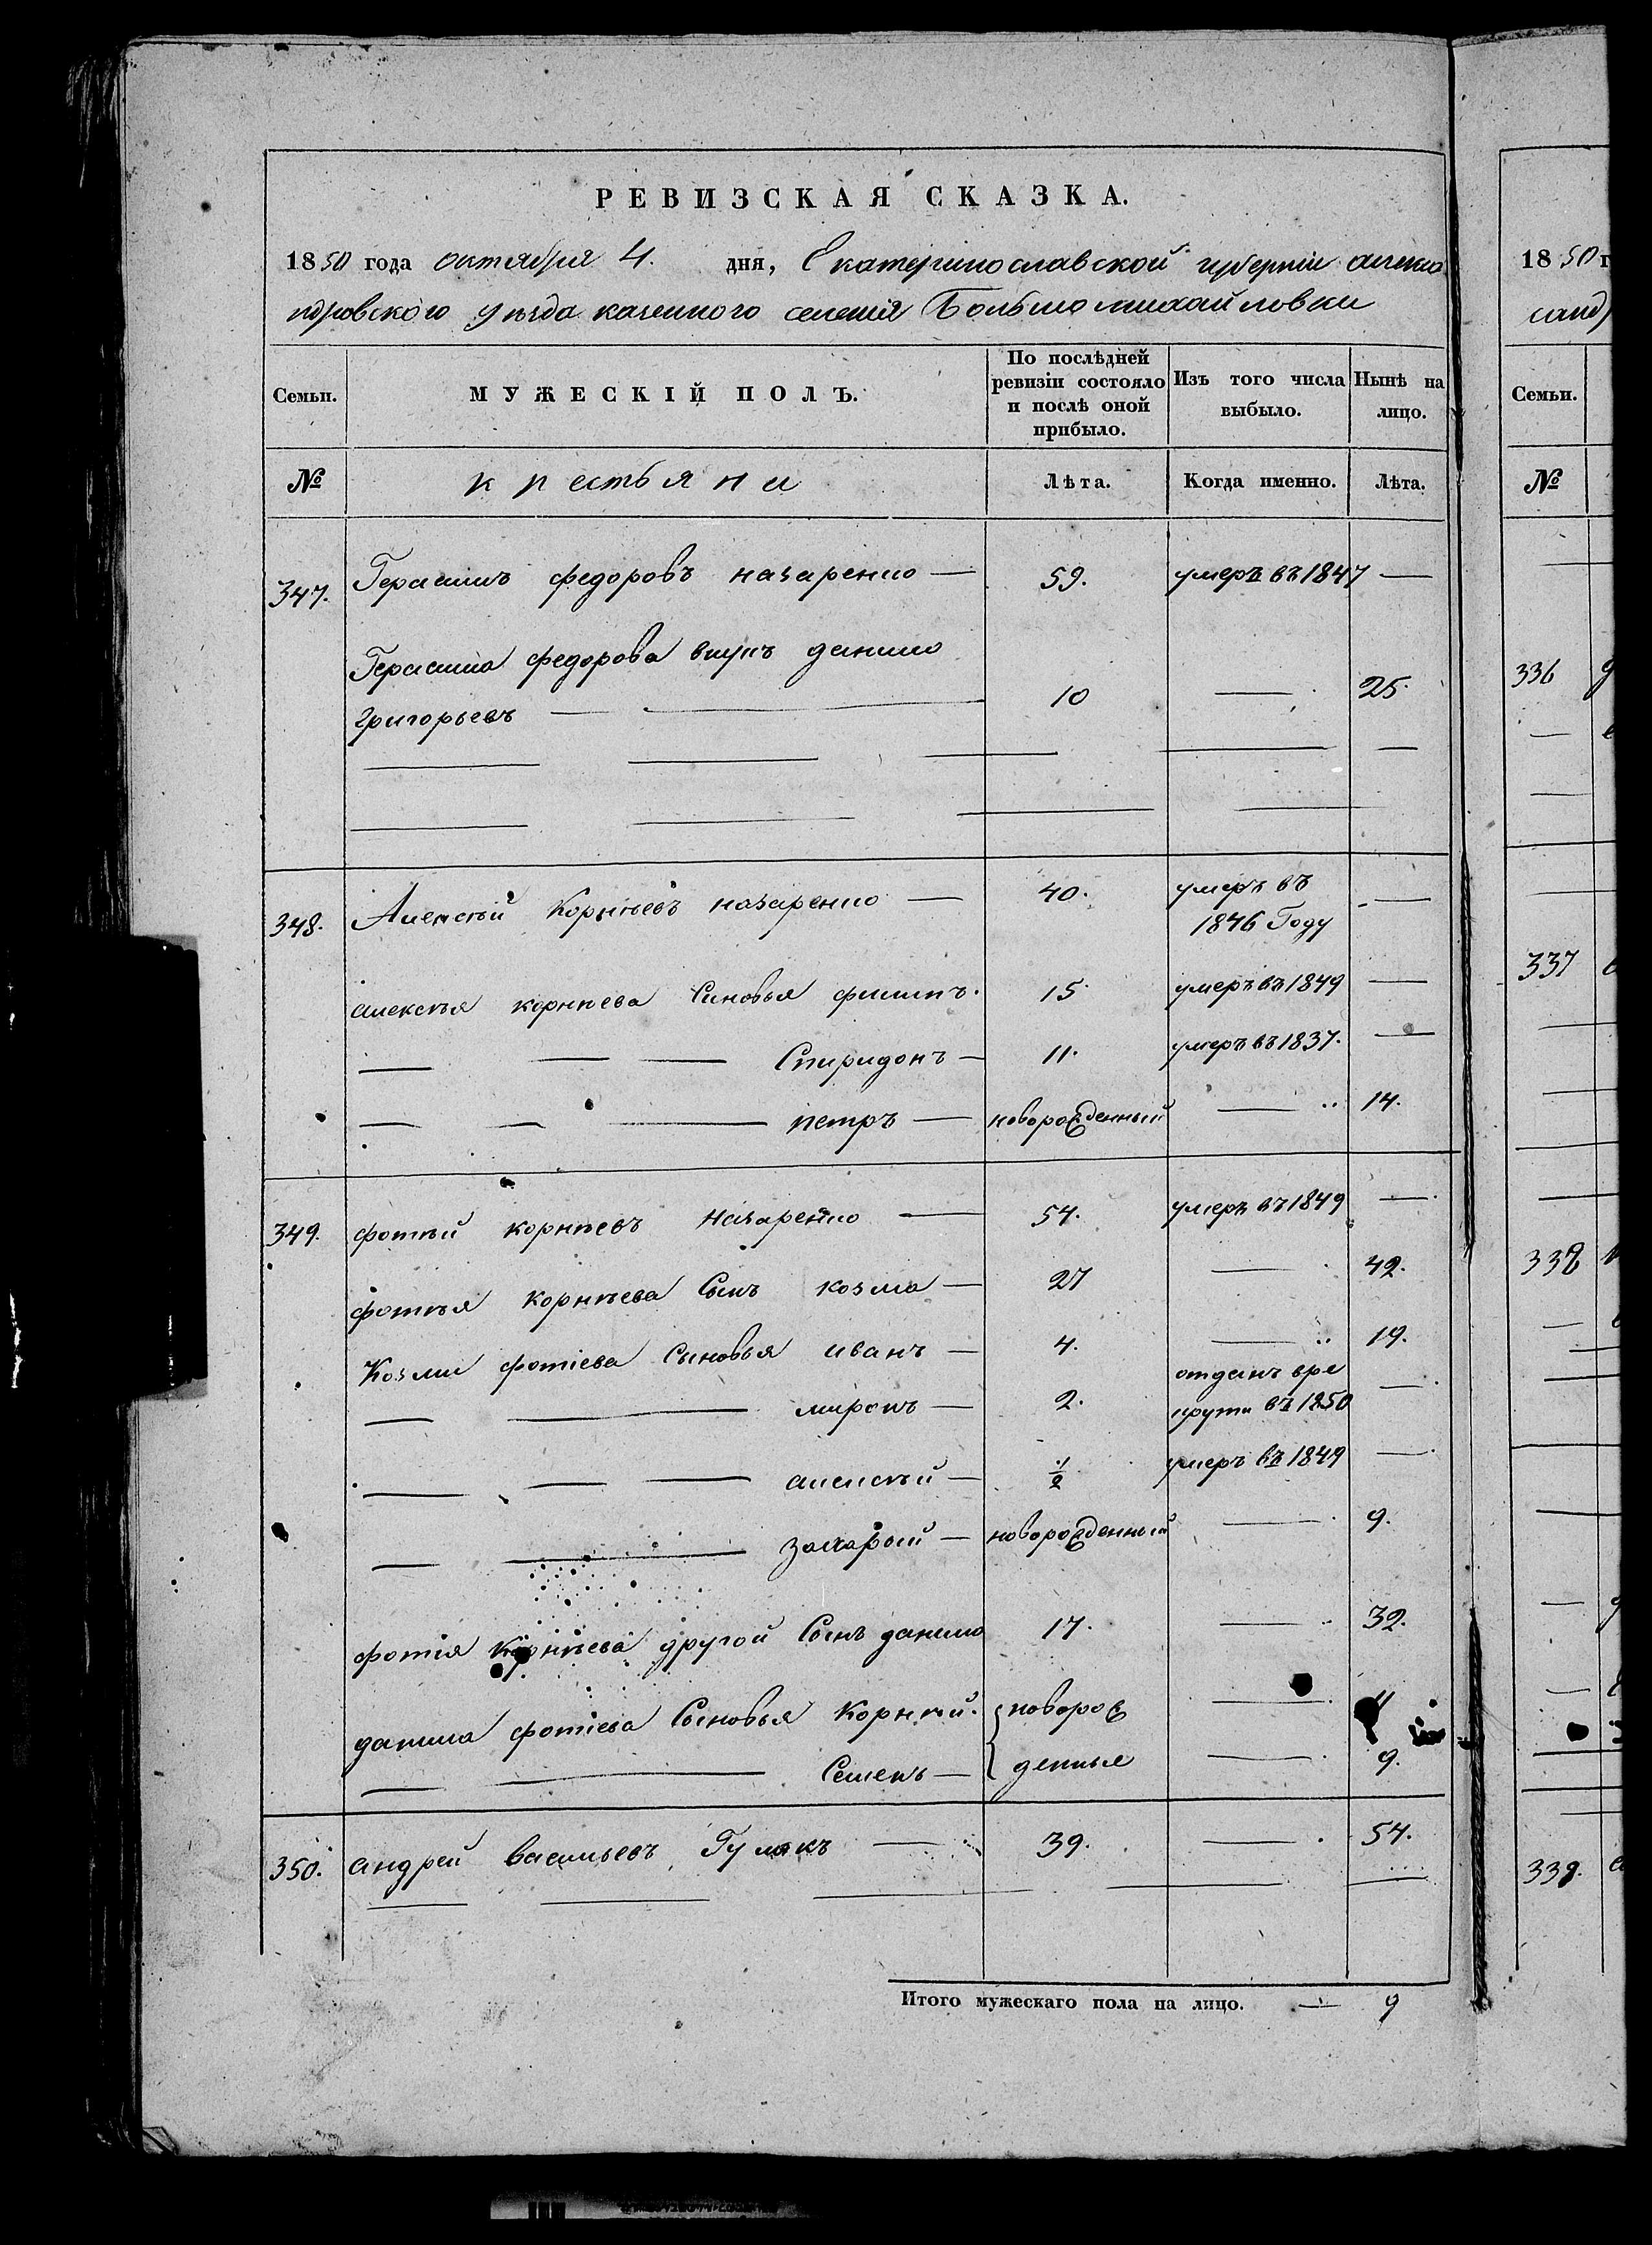 РЕВИЗСКАЯ СКАЗКА.
1850 года октября 4. дня, Екатеринославской губерніи алекса
ндровского уѣзда казенного селенія Большомихайловки
Семьи. МУЖЕСКІЙ ПОЛЪ. По послѣдней ревизіи состояло и послѣ оной прибыло. Изъ того числа выбыло. Нынѣ на лицо.
№ крестьяни Лѣта. Когда именно. Лѣта.
347. Герасимъ федоровъ назаренко — 59. умеръ въ 1847 —
Герасима федорова внукъ данило
григорьевъ — — 10 — 25.
348. Алексѣй Корнѣевъ назаренко — 40. умеръ въ
1846 Году —
алексѣя корнѣева Синовья филипъ. 15. умеръ въ 1849 —
— — — Спиридонъ — 11. умеръ въ 1837. —
— — — петръ — новорожденный — 14.
349. фотѣй корнѣевъ Назаренко — 54. умеръ въ 1849 —
фотѣя корнѣева Сынъ козма — 27 — 42.
Козми фотіева Сыновья иванъ — 4. — 19.
— — миронъ — 2. отданъ вре
крути въ 1850 —
— — — алексѣй — 1/2 умеръ въ 1849 —
— — захарій — новорожденный — 9.
фотія корнѣева другой Сынъ данило 17. — 32.
данила фотіева Сыновья Корнѣй. новорож — 11
— — Семенъ — денные — 9.
350. андрей васильевъ Гулякъ — 39. — 54.
Итого мужескаго пола на лицо. — 9
1850 г
санд
Семьи.
№
336
337
338
339.